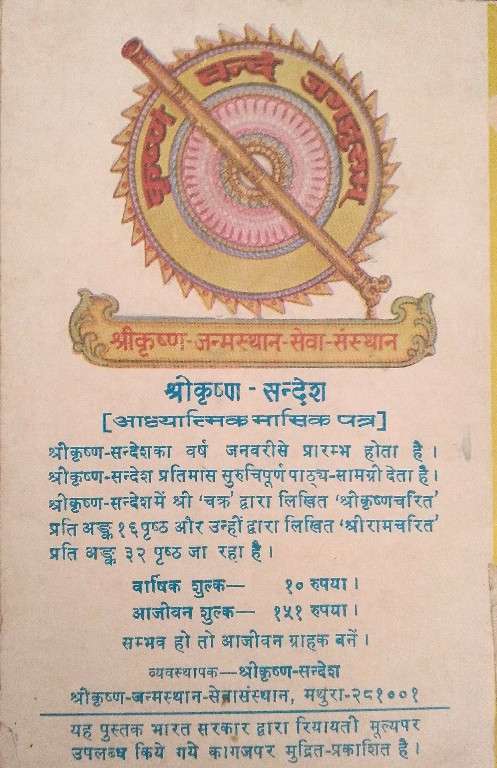 कृष्णं वन्दे जगद्गुरुम्
श्रीकृष्ण-जन्मस्थान-सेवा-संस्थान
श्रीकृष्ण - सन्देश
[आध्यात्मिक मासिक पत्र]
श्रीकृष्ण-सन्देशका वर्ष जनवरीसे प्रारम्भ होता है ।
श्रीकृष्ण-सन्देश प्रतिमास सुरुचिपूर्ण पाठ्य-सामग्री देता है ।
श्रीकृष्ण-सन्देशमें श्री 'चक्र' द्वारा लिखित 'श्रीकृष्णचरित'
प्रति अङ्क १६ पृष्ठ और उन्हीं द्वारा लिखित 'श्रीरामचरित'
प्रति अङ्क ३२ पृष्ठ जा रहा है ।
वार्षिक शुल्क— १० रुपया ।
आजीवन शुल्क— १५१ रुपया ।
सम्भव हो तो आजीवन ग्राहक बनें ।
व्यवस्थापक—श्रीकृष्ण-सन्देश
श्रीकृष्ण-जन्मस्थान-सेवासंस्थान, मथुरा-२८१००१
यह पुस्तक भारत सरकार द्वारा रियायती मूल्यपर
उपलब्ध किये गये कागजपर मुद्रित-प्रकाशित है ।